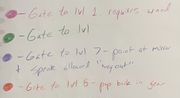 - Gate to lvl 1. requires wand
- Gate to lvl
- Gate to lvl 7 - point at mirror
+ speak allowed "
- Gate to lvl 8 - pop back in gear